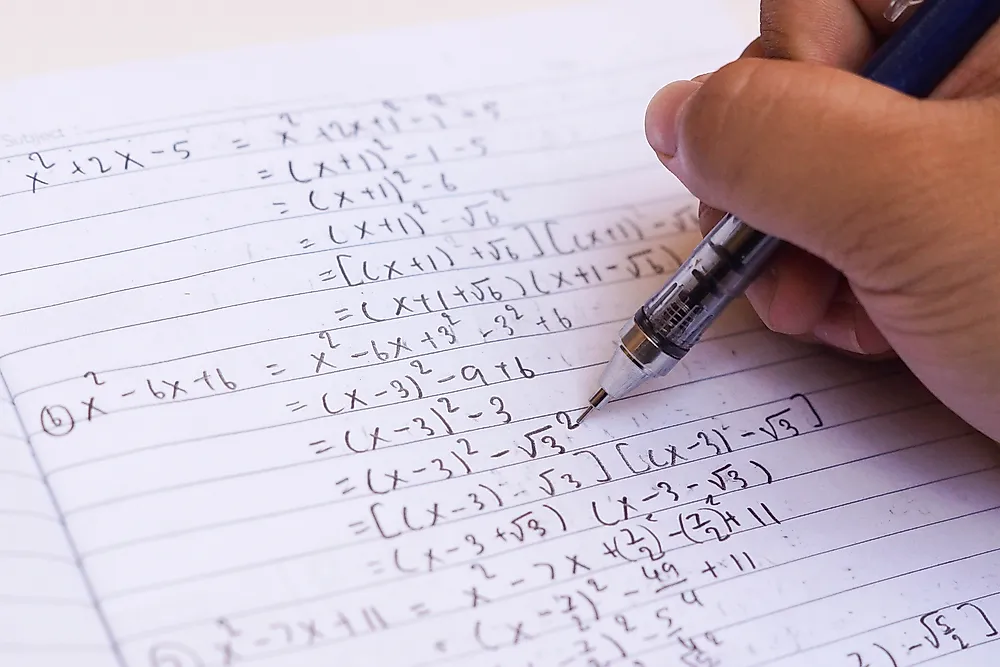 Subject
x² + 2x - 5 = x² + 2x + 1² - 1² - 5
= (x+1)² - 1 - 5
= (x+1)² - 6
= (x+1)² - √6²
= [(x+1)² + √6] [(x+1) - √
= (x+1+√6) (x+1-√6)
(b) x² - 6x + 6 = x² - 6x + 3² - 3² + 6
= (x-3)² - 9 + 6
= (x-3)² - 3
= (x-3)² - √3²
= [(x-3) - √3] [(x-3) - √3]
= (x-3+√3) (x-3-√3)
x² - 7x + 11 = x² - 7x + (7/2)² - (7/2)² + 11
(x - 7/2)² - 49/4 + 11
- 7/2)² - 5/4
) - √5/2]